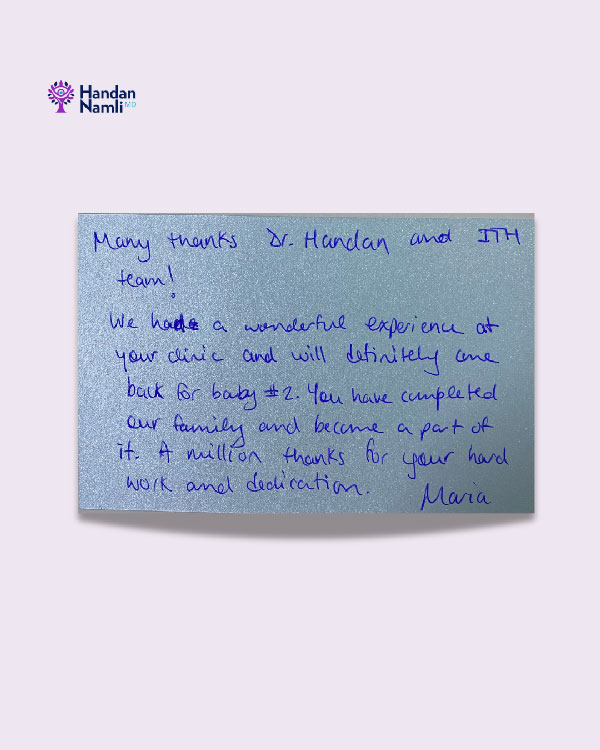 Handan
Namli MD
Many thanks Dr. Handan and ITH
team!
We had a wonderful experience at
your clinic and will definitely come
back for baby #2. You have completed
our family and become a part of
it. A million thanks for your hard
work and dedication.
Maria